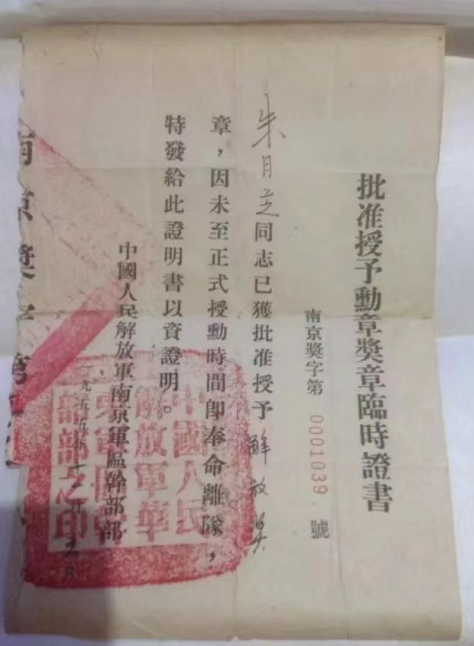 批准授予勳章獎章臨時證書
南京獎字第 0001039 號
朱月芝同志已獲批准授予解放獎
章，因未至正式授勳時間即奉命離隊，
特發給此證明書以資證明。
中國人民解放軍南京軍區幹部部
一九五五年十
中國人民
解放軍華
東軍區幹
部部之印
南京獎字第